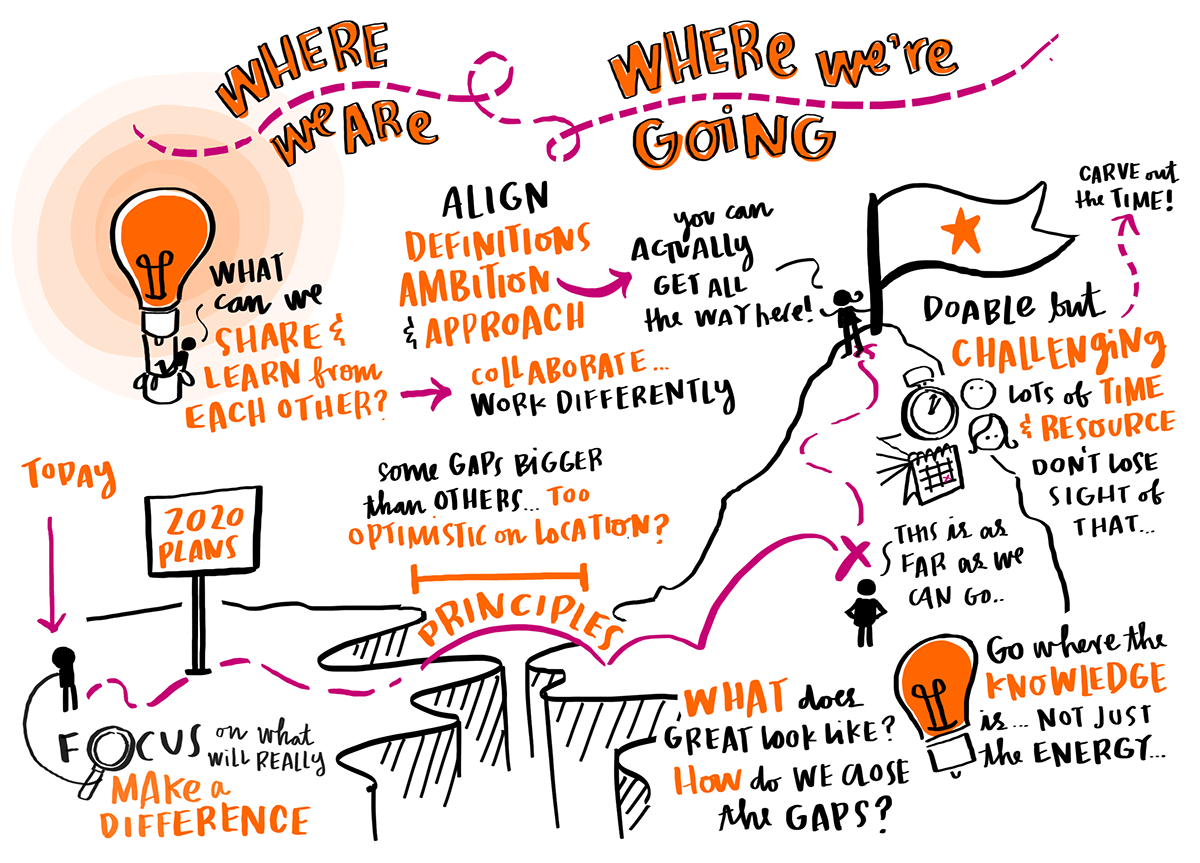 WHERE
WE ARE
WHERE WE'RE
GOING
WHAT
can we
SHARE &
LEARN from
EACH OTHER?
ALIGN
DEFINITIONS
AMBITION
& APPROACH
you can
ACTUALLY
GET ALL
the WAY here!
COLLABORATE...
WORK DIFFERENTLY
CARVE out
the TIME!
DOABLE but
CHALLENGING
LOTS of TIME
& RESOURCE
DON'T LOSE
SIGHT of
THAT...
TODAY
2020
PLANS
some GAPS BIGGER
than OTHERS... TOO
OPTIMISTIC on LOCATION?
PRINCIPLES
THIS is as
FAR as we
CAN GO..
FOCUS on what
will REALLY
MAKE a
DIFFERENCE
WHAT does
GREAT look LIKE?
HOW do WE CLOSE
the GAPS?
GO where the
KNOWLEDGE
is... NOT JUST
the ENERGY...